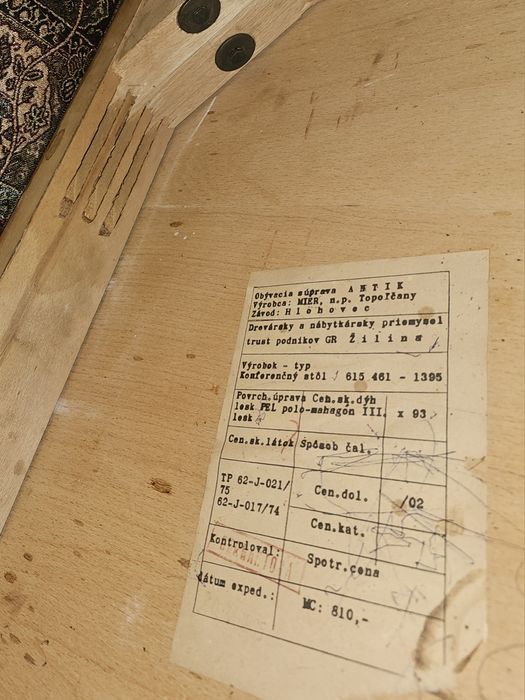 Obývacia súprava A N T I K
Výrobca: MIER, n.p. Topoľčany
Závod: H l o h o v e c
Drevársky a nábytkársky priemysel
trust podnikov GR Ž i l i n a
Výrobok - typ
Konferenčný stôl 615 461 - 1395
Povrch.úprava Cen.sk.dýh
lesk PEL polo-mahagon III. x 93
lesk
Cen.sk.látok Spôsob čal.
TP 62-J-021/
75
62-J-017/74
Cen.dol. /02
Cen.kat.
Kontroloval:
Spotr.cena
dátum exped.:
MC: 810,-